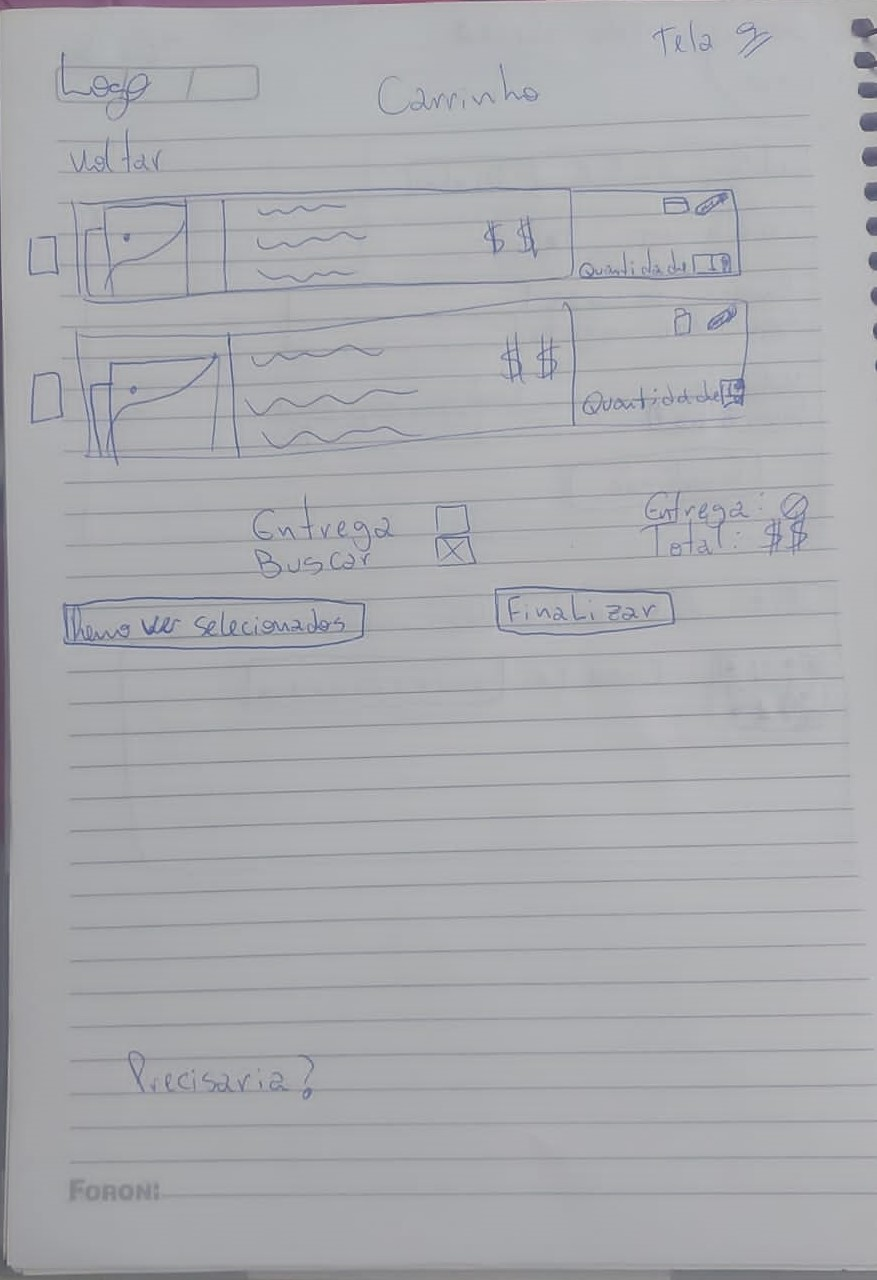 Tela 9
Logo
Carrinho
Voltar
$$
Quantidade 1
$$
Quantidade
Entrega
Buscar
Entrega: 0
Total: $$
Remover selecionados
Finalizar
Precisaria?
FORONI